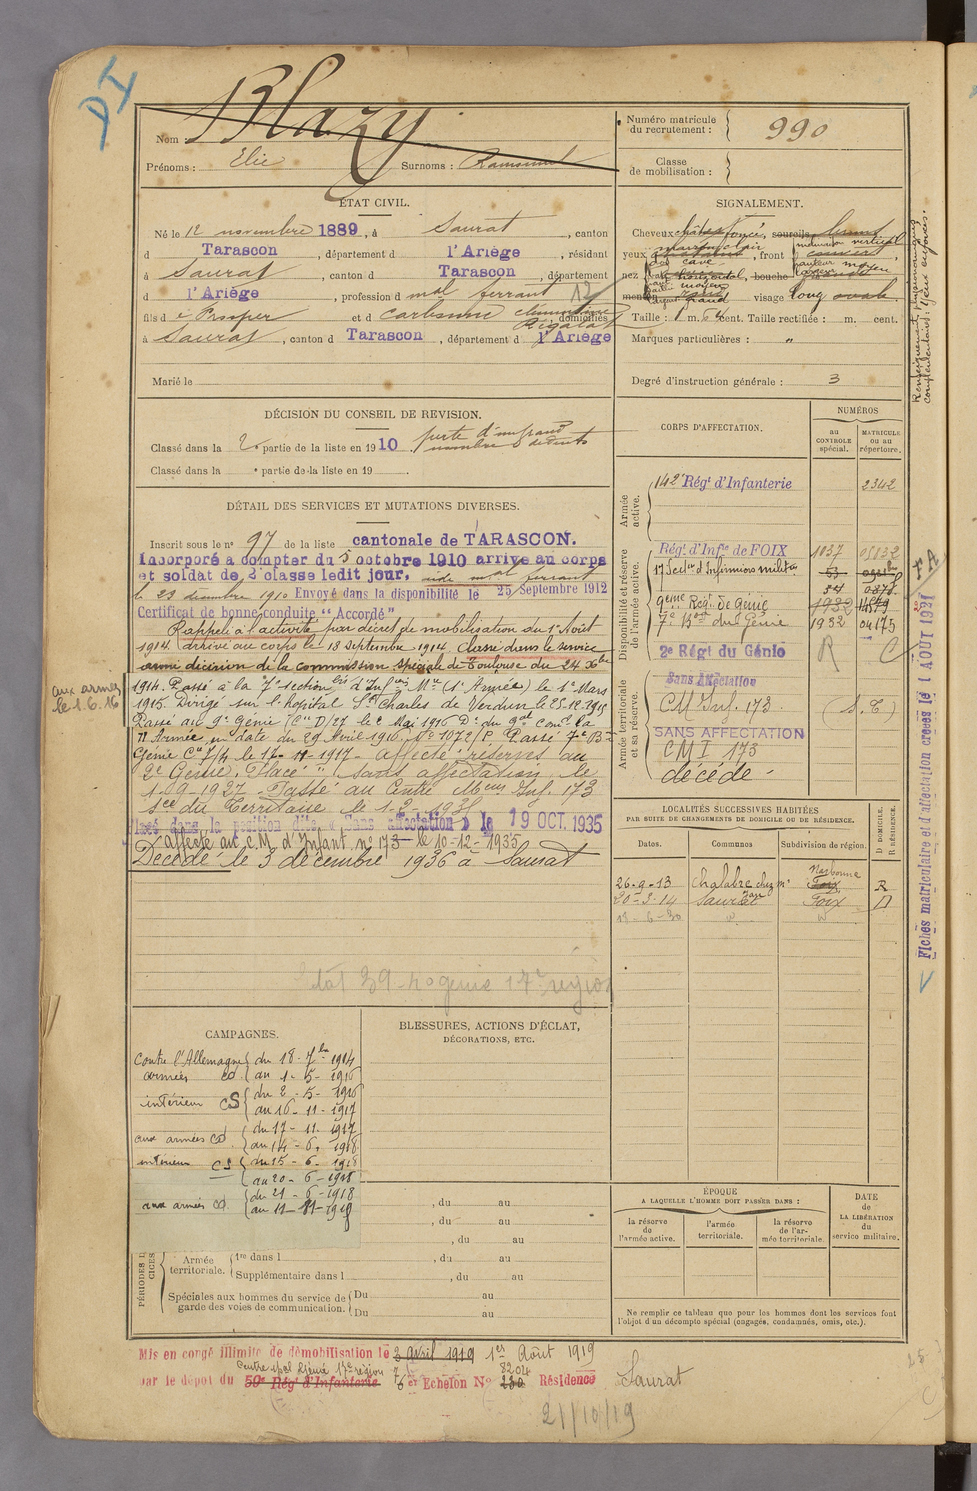 DI
Nom : Blazy
Prénoms : Elie Surnoms :
Numéro matricule du recrutement : 990
Classe de mobilisation :
ÉTAT CIVIL.
Né le 12 novembre 1889, à Saurat, canton
d Tarascon, département d l'Ariège, résidant
à Saurat, canton d Tarascon, département
d l'Ariège, profession d mal ferrant
fils d e Prosper et d Carbonne Clémentine Rigalat domiciliés
à Saurat, canton d Tarascon, département d l'Ariège
Marié le
SIGNALEMENT.
Cheveux châtain foncé, sourcils bruns
yeux marron clair, front
nez, bouche
menton visage long ovale
Taille : 1 m. 64 cent. Taille rectifiée : m. cent.
Marques particulières : "
Degré d'instruction générale : 3
Renseignements physionomiques complémentaires : yeux enfoncés.
DÉCISION DU CONSEIL DE REVISION.
Classé dans la 2e partie de la liste en 1910 perte d'un grand nombre de dents
Classé dans la e partie de la liste en 19 .
DÉTAIL DES SERVICES ET MUTATIONS DIVERSES.
Inscrit sous le no 97 de la liste cantonale de TARASCON.
Incorporé à compter du 5 octobre 1910 arrivé au corps
et soldat de 2e classe ledit jour, aide mal ferrant
le 23 décembre 1910 Envoyé dans la disponibilité le 25 Septembre 1912
Certificat de bonne conduite "Accordé"
Rappelé à l'activité par décret de mobilisation du 1er Août
1914 arrivé au corps le 18 Septembre 1914. Classé dans le service
armé décision de la commission spéciale de Toulouse du 24 Xbre
1914. Passé à la 7e section d'Infers Mres (1e Armée) le 1er Mars
1915. Dirigé sur l'hopital St Charles de Verdun le 25-12-1915
Passé au 9e Génie (Cie D/27 le 2 Mai 1916 Don du Gal Comt la
II Armée en date du 29 Avril 1916, No 1072/P. Passé 7e Bon
Génie Cie 7/4 le 17-11-1917 - Affecté réserves au
2e Génie. Placé "Sans affectation" le
1-09-1927 - Passé au Centre Mon Inf. 173
Sce du Territoire le 1-2-1935
Placé dans la position dite « Sans affectation » le 19 OCT. 1935
affecté au C.M. d'Infant. no 173 - le 10-12-1935
Décédé le 3 décembre 1936 à Saurat
aux armées
le 1.6.16
39 génie 17e région
CORPS D'AFFECTATION.
NUMÉROS
au CONTROLE spécial.
MATRICULE ou au répertoire.
Armée active.
142e Régt d'Infanterie 2342
Disponibilité et réserve de l'armée active.
Régt d'Infie de FOIX 1037
17 Section d'Infirmiers militres 53
9ème Régt de Génie 1932
7e Bon du Génie 1932 04175
2e Régt du Génie R C
Armée territoriale et sa réserve.
Sans Affectation
CM Inf. 173 (S.T)
SANS AFFECTATION
CMI 173
décédé -
Fiches matriculaire et d'affectation créées le 1 AOUT 1921
LOCALITÉS SUCCESSIVES HABITÉES
PAR SUITE DE CHANGEMENTS DE DOMICILE OU DE RÉSIDENCE.
Dates. Communes Subdivision de région. D DOMICILE. R RÉSIDENCE.
26-9-13 Chalabre chez Mr Foix Narbonne R
20-3-14 Saurat Foix D
18-6-30
CAMPAGNES.
Contre l'Allemagne
armées cd du 18-7bre 1914 au 1-5-1916
intérieur CS du 2-5-1916 au 16-11-1917
aux armées cd du 17-11-1917 au 14-6-1918
intérieur CS du 15-6-1918 au 20-6-1918
aux armées cd du 21-6-1918 au 11-11-1918
BLESSURES, ACTIONS D'ÉCLAT,
DÉCORATIONS, ETC.
, du au
, du au
, du au
Armée territoriale. 1re dans l , du au
Supplémentaire dans l , du au
Spéciales aux hommes du service de garde des voies de communication. Du au
Du au
ÉPOQUE
A LAQUELLE L'HOMME DOIT PASSER DANS :
la réserve de l'armée active.
l'armée territoriale.
la réserve de l'armée territoriale.
DATE de LA LIBÉRATION du service militaire.
Ne remplir ce tableau que pour les hommes dont les services font
l'objet d'un décompte spécial (engagés, condamnés, omis, etc.).
Mis en congé illimité de démobilisation le 3 avril 1919 1er Août 1919
Centre mobl Génie 17e région 8204
par le dépôt du 59e Régt d'Infanterie 7 6er Echelon No 230 Résidence Saurat
21/10/19